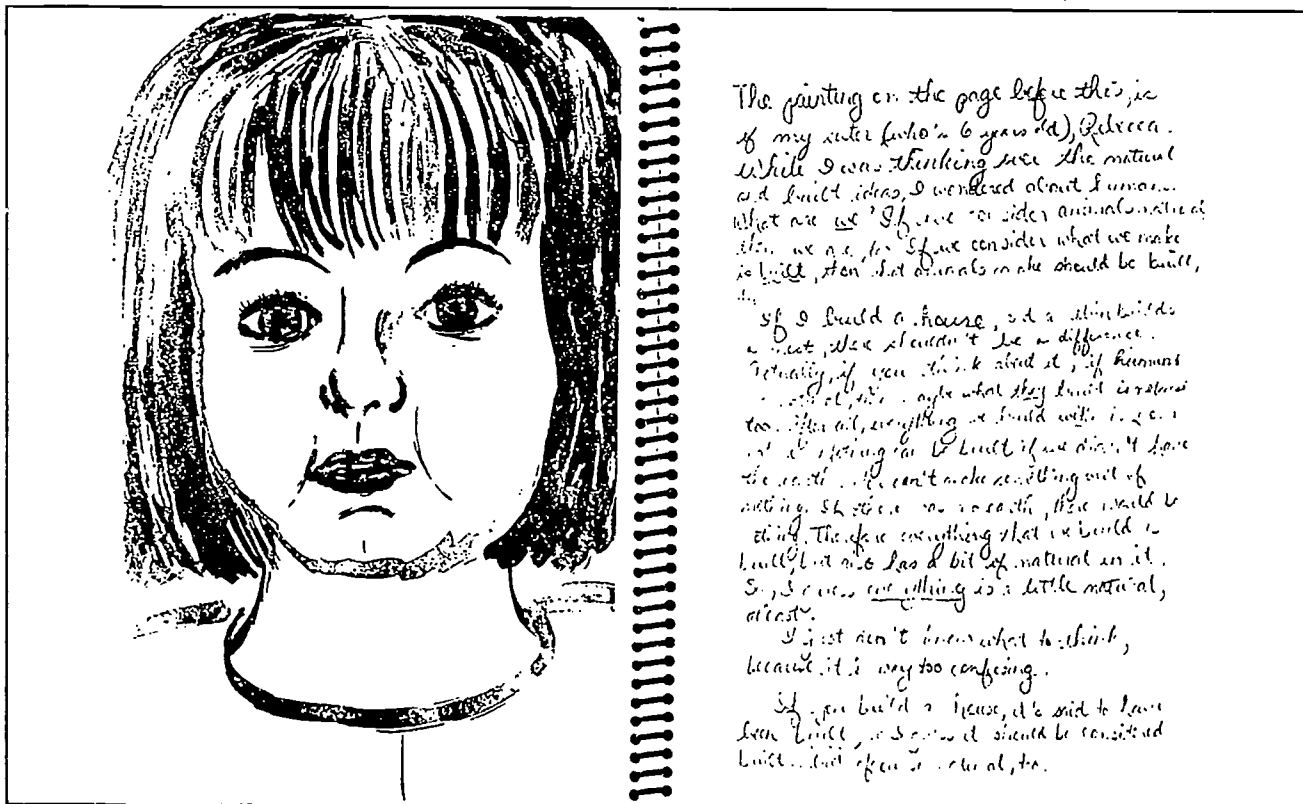 The painting on the page before this, is
of my sister (who's 6 years old), Rebecca.
While I was thinking over the natural
and built ideas, I wondered about humans.
What are we? If we consider animals natural
then we are, too. If we consider what we make
is built, then what animals make should be built,
If I build a house, and a robin builds
a nest, there shouldn't be a difference.
Actually, if you think about it, if humans
maybe what they build is natural
too. After all, everything we build with
nothing can be built if we didn't have
the earth. We can't make something out of
nothing. If there was no earth, there would be
Therefore everything that we build is
built, but also has a bit of natural in it.
So, I guess everything is a little natural,
at least.
I just don't know what to think,
because it is way too confusing.
If you build a house, it's said to have
been built, so I guess it should be considered
built... but of course natural, too.